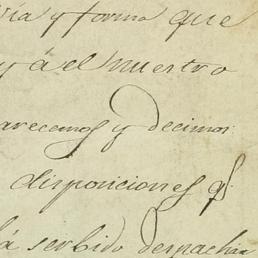 via y forma que
y á el nuestro
arecemos y decimos
disposiciones q.
á serbido despachar